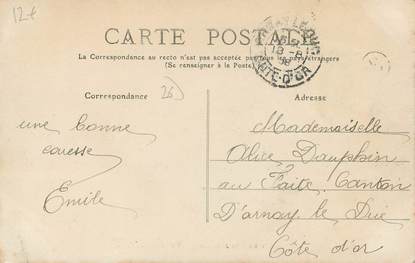 12+
CARTE POSTALE
La Correspondance au recto n'est pas acceptée par tous les pays étrangers
(Se renseigner à la Poste)
Correspondance
26
Adresse
une bonne
caresse
Emile
Mademoiselle
Alice Dauphin
au Faite. Canton
D'arnay le Duc
Côte d'or
CÔTE-D'OR